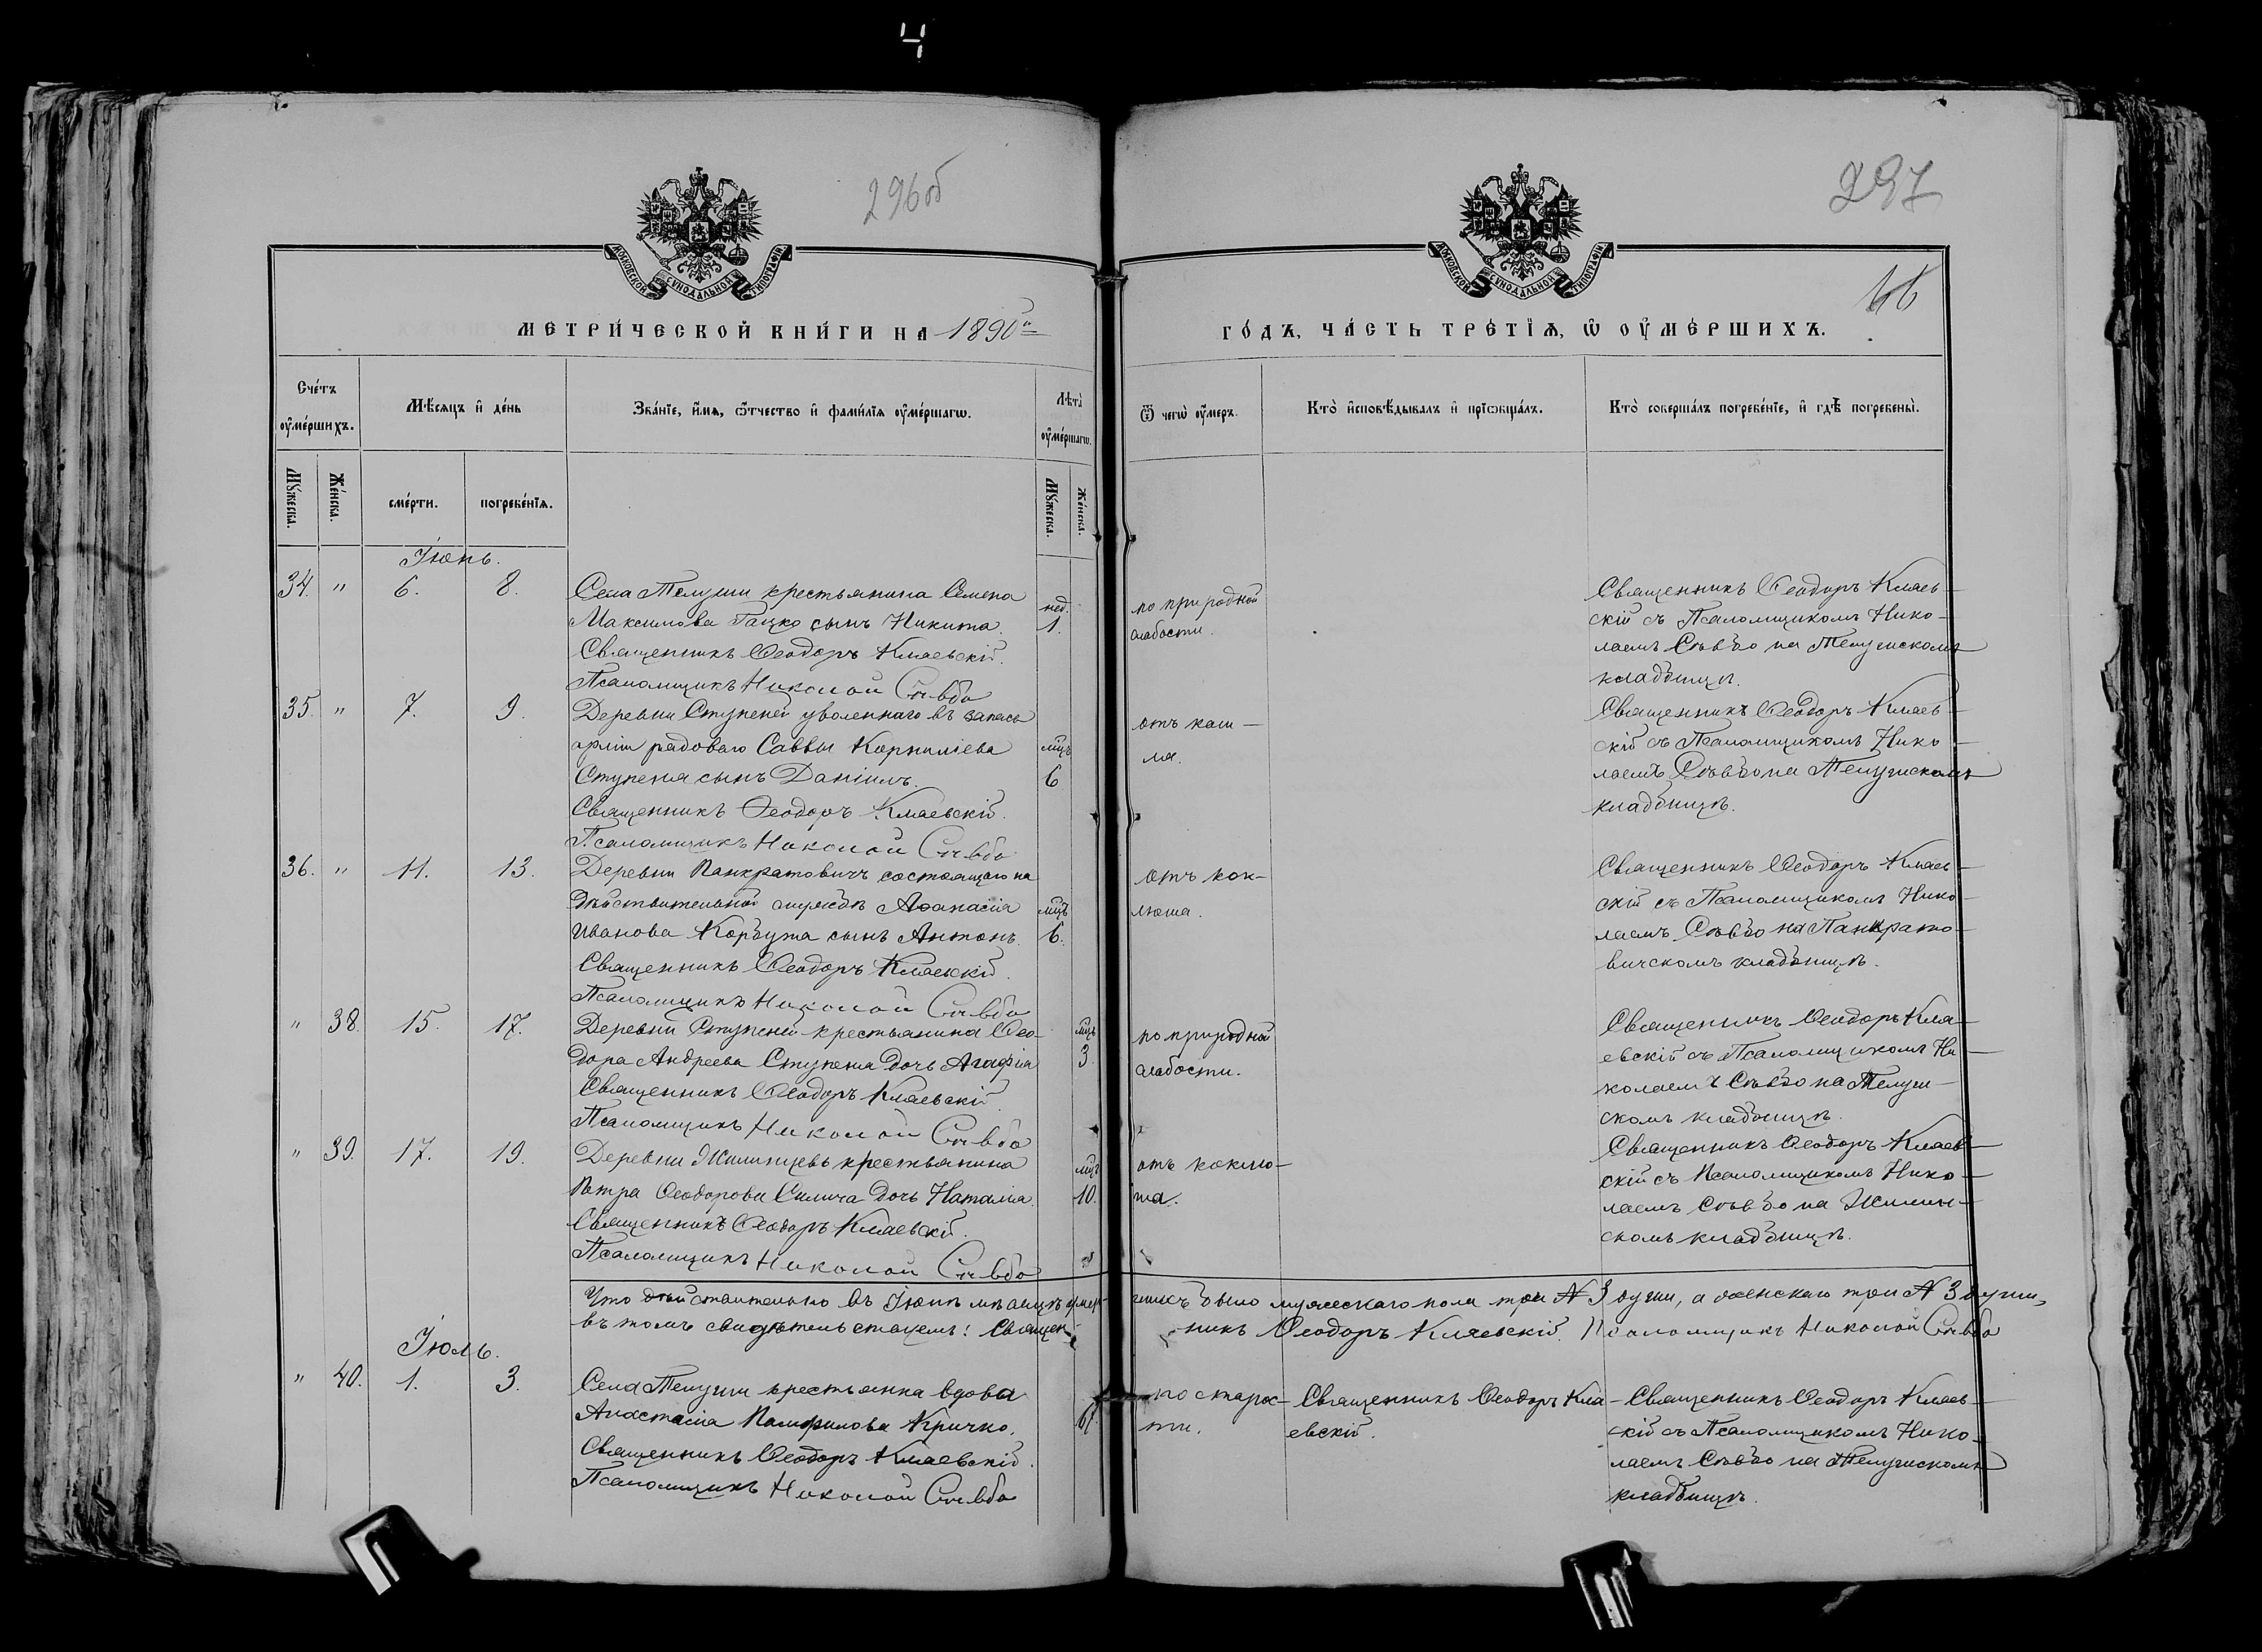 296об
297
МОСКОВСКОЙ СѴНОДАЛЬНОЙ ТИПОГРАФІИ
МОСКОВСКОЙ СѴНОДАЛЬНОЙ ТИПОГРАФІИ
МЕТРИ́ЧЕСКОЙ КНИ́ГИ НА 1890й
ГО́ДЪ, ЧА́СТЬ ТРЕ́ТІѦ, Ѡ҆ ОУ҆МЕ́РШИХЪ.
Сче́тъ оу҆ме́ршихъ.
Мѣ́сѧцъ и҆ де́нь
Зва́нїе, и҆́мѧ, ѻ҆́тчество и҆ фами́лїѧ оу҆ме́ршагѡ.
Лѣ́та оу҆ме́ршагѡ.
Ѿ чегѡ̀ оу҆́меръ.
Кто̀ и҆сповѣ́дывалъ и҆ прїѡбща́лъ.
Кто̀ соверша́лъ погребе́нїе, и҆ гдѣ̀ погребены̀.
Мꙋ́жеска.
Же́нска.
сме́рти.
погребе́нїѧ.
Мꙋ́жеска.
Же́нска.
Іюнь.
34. " 6. 8.
Села Телуши крестьянина Семена
Максимова Гацко сынъ Никита.
Священникъ Ѳеодоръ Кляевскій.
Псаломщикъ Николай Съвбо
нед.
1.
по природной
слабости.
Священникъ Ѳеодоръ Кляев-
скій съ Псаломщикомъ Нико-
лаемъ Съвбо на Телушскомъ
кладбищѣ.
35. " 7. 9.
Деревни Ступеней уволеннаго въ запасъ
арміи рядоваго Саввы Корниліева
Ступеня сынъ Даніилъ.
Священникъ Ѳеодоръ Кляевскій.
Псаломщикъ Николай Съвбо
мцъ
6
отъ каш-
ля.
Священникъ Ѳеодоръ Кляев-
скій съ Псаломщикомъ Нико-
лаемъ Съвбо на Телушскомъ
кладбищѣ.
36. " 11. 13.
Деревни Панкратовичъ состоящаго на
дѣйствительной службѣ Аѳанасія
Иванова Корбута сынъ Антонъ.
Священникъ Ѳеодоръ Кляевскій.
Псаломщикъ Николай Съвбо
мцъ
6.
отъ кок-
люша.
Священникъ Ѳеодоръ Кляев-
скій съ Псаломщикомъ Нико-
лаемъ Съвбо на Панкрато-
вичскомъ кладбищѣ.
" 38. 15. 17.
Деревни Ступеней крестьянина Ѳео-
дора Андреева Ступеня дочь Агафія
Священникъ Ѳеодоръ Кляевскій.
Псаломщикъ Николай Съвбо
мцъ
3.
по природной
слабости.
Священникъ Ѳеодоръ Кля-
евскій съ Псаломщикомъ Ни-
колаемъ Съвбо на Телуш-
скомъ кладбищѣ.
" 39. 17. 19.
Деревни Жилинцевъ крестьянина
Петра Ѳеодорова Силича дочь Наталія.
Священникъ Ѳеодоръ Кляевскій.
Псаломщикъ Николай Съвбо
мцъ
10.
отъ коклю-
ша.
Священникъ Ѳеодоръ Кляев-
скій съ Псаломщикомъ Нико-
лаемъ Съвбо на Жилин-
скомъ кладбищѣ.
Что дѣйствительно въ Іюнѣ мѣсяцѣ умер-
шихъ было мужескаго пола три № 3 души, а женскаго три № 3 души,
въ томъ свидѣтельствуемъ: Священ-
никъ Ѳеодоръ Кляевскій. Псаломщикъ Николай Съвбо
Іюль.
" 40. 1. 3.
Села Телуши крестьянка вдова
Анастасія Памфилова Кричко.
Священникъ Ѳеодоръ Кляевскій.
Псаломщикъ Николай Съвбо
по старос-
ти.
Священникъ Ѳеодоръ Кля-
евскій.
Священникъ Ѳеодоръ Кляев-
скій съ Псаломщикомъ Нико-
лаемъ Съвбо на Телушскомъ
кладбищѣ.